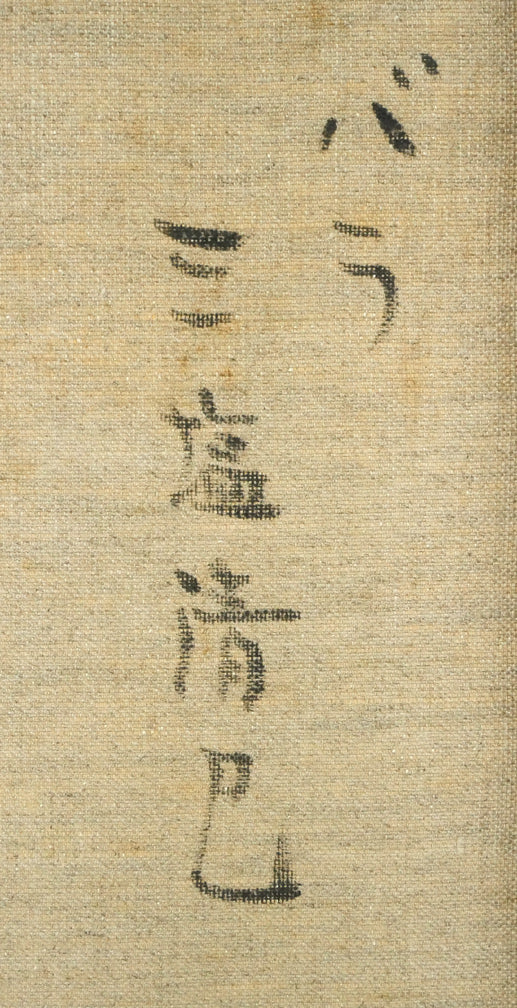 バラ
三塩清巳